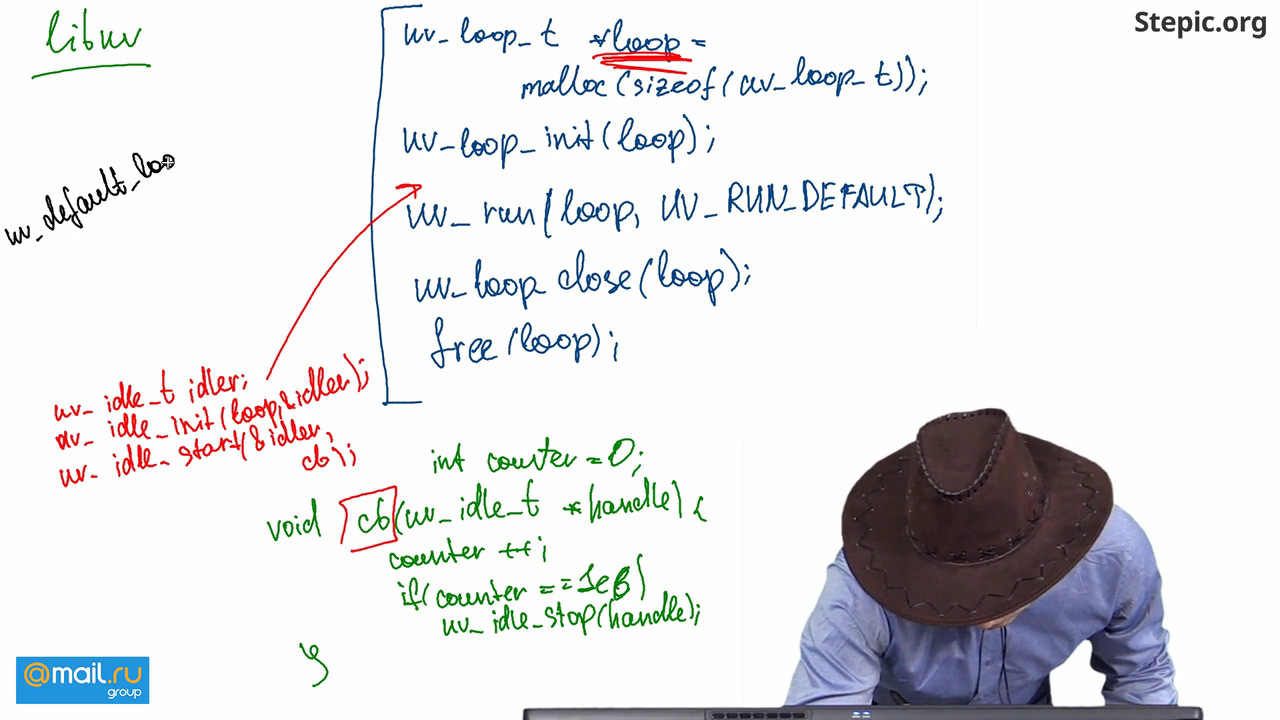 libuv
Stepic.org
uv_loop_t *loop =
malloc(sizeof(uv_loop_t));
uv_loop_init(loop);
uv_run(loop, UV_RUN_DEFAULT);
uv_loop_close(loop);
free(loop);
uv_default_loo
uv_idle_t idler;
uv_idle_init(loop, &idler);
uv_idle_start(&idler,
cb);
int counter = 0;
void cb(uv_idle_t *handle) {
counter ++;
if(counter == 1e6)
uv_idle_stop(handle);
}
@mail.ru
group